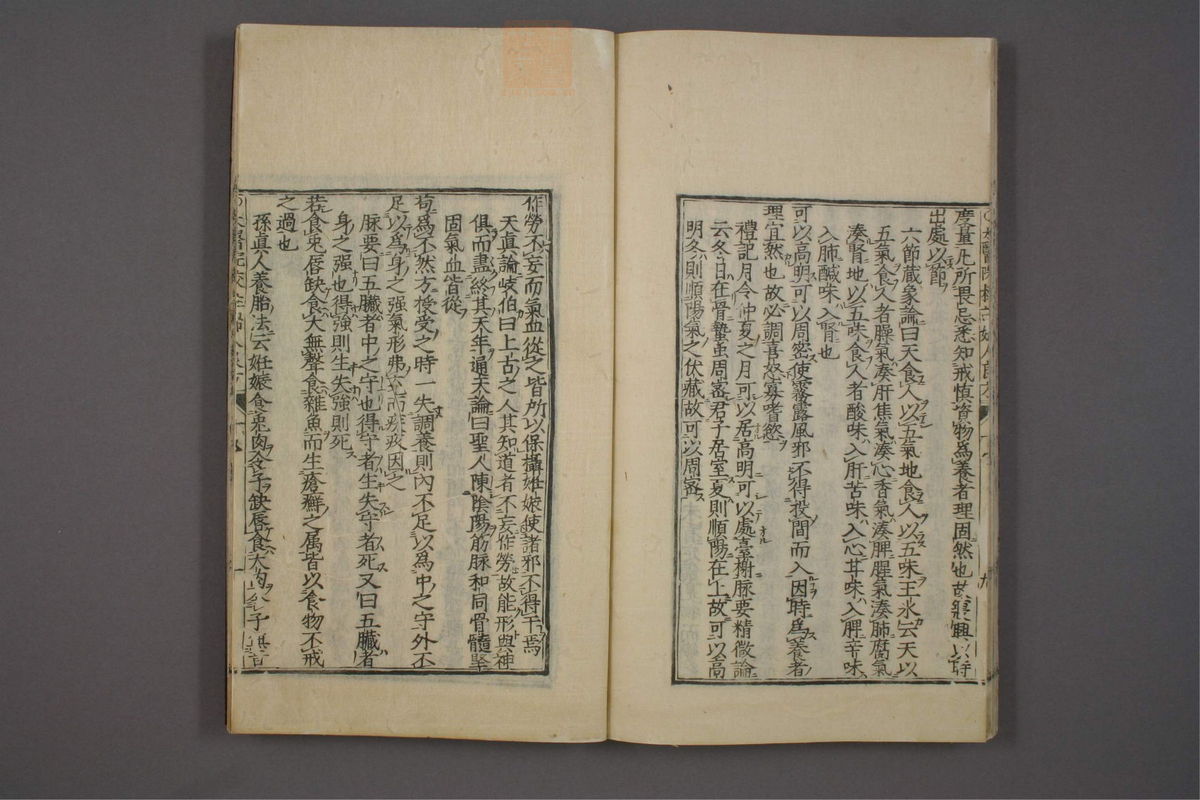 度量凡所畏忌悉知戒慎資物為養者理固然也故寢興以時
出處以節
六節蔵象論曰天食人以五氣地食人以五味王氷云天以
五氣食人者臊氣湊肝焦氣湊心香氣湊脾腥氣湊肺腐氣
湊腎地以五味食人者酸味入肝苦味入心甘味入脾辛味
入肺醎味入腎也
可以高明可以周密使霧露風邪不得投間而入因時為養者
理宜然也故必調喜怒寡嗜慾
禮記月令仲夏之月可以居高明可以處臺榭脉要精微論
云冬日在骨蟄虫周密君子居室夏則順陽在上故可以高
明冬則順陽氣之伏藏故可以周密
作勞不妄而氣血從之皆所以保攝妊娠使諸邪不得干焉
天真論岐伯曰上古之人其知道者不妄作勞故能形與神
俱而盡終其天年通天論曰聖人陳陰陽筋脉和同骨髓堅
固氣血皆從
苟為不然方授受之時一失調養則內不足以為中之守外不
足以為身之强氣形弗充而疾疢因之
脉要曰五臓者中之守也得守者生失守者死又曰五臓者
身之强也得強則生失強則死
若食兎唇缺食犬無聲食雜魚而生瘡癬之属皆以食物不戒
之過也
孫真人養胎法云妊娠食兎肉令子缺唇食犬肉令子無音